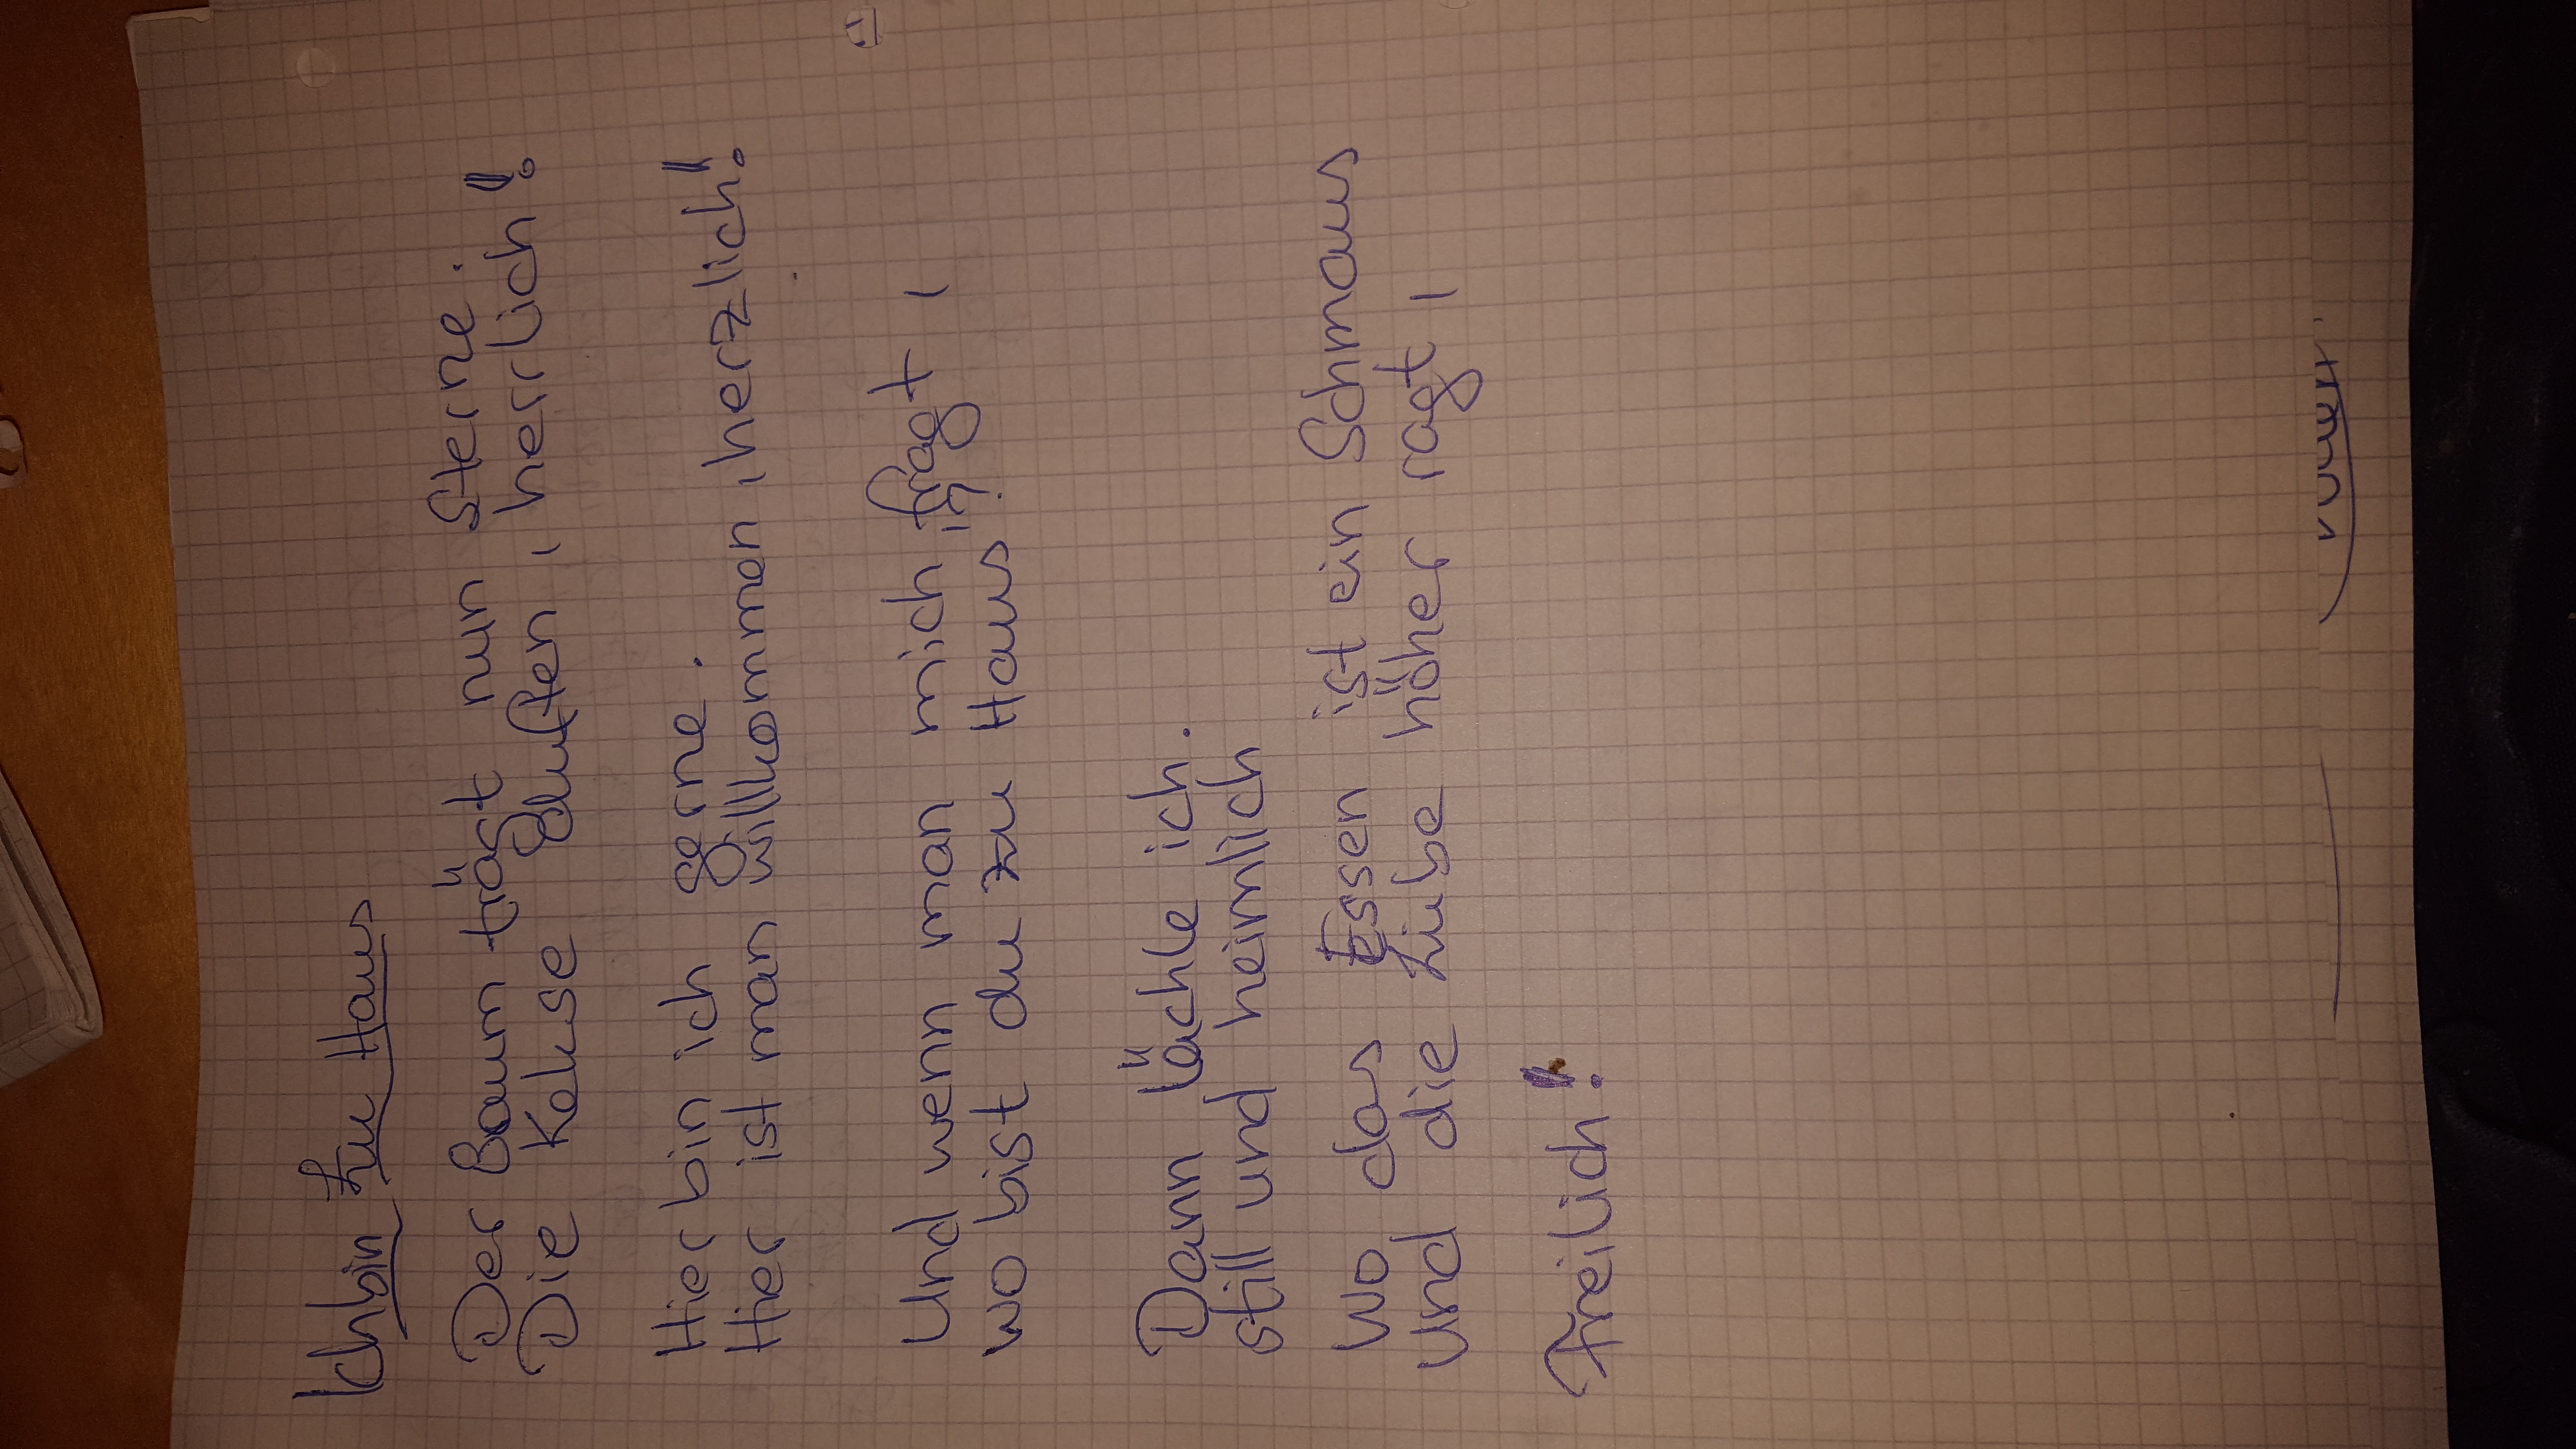 Ich bin zu Haus
Der Baum trägt nun Sterne.
Die Kekse duften, herrlich!
Hier bin ich gerne.
Hier ist man willkommen, herzlich!
Und wenn man mich fragt,
wo bist du zu Haus?
Dann lächle ich.
still und heimlich
Wo das Essen ist ein Schmaus
und die Liebe höher ragt,
Freilich!